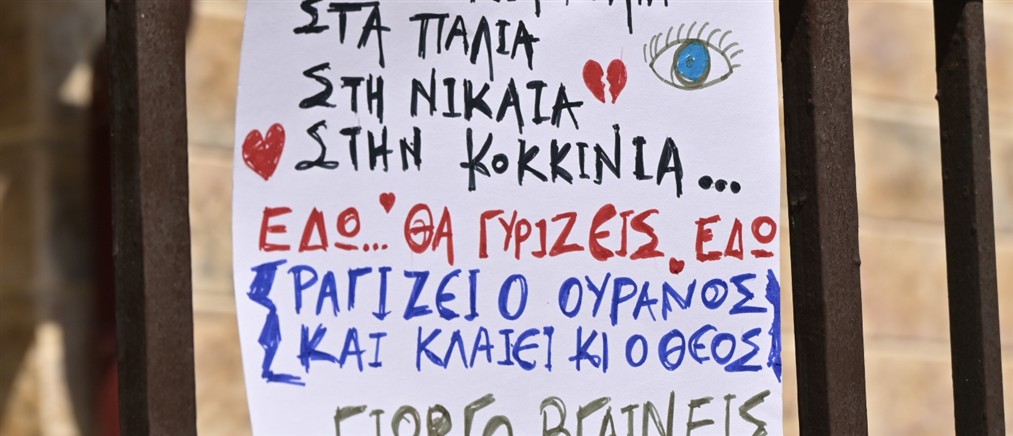 ΣΤΑ ΠΑΛΙΑ
ΣΤΗ ΝΙΚΑΙΑ
ΣΤΗΝ ΚΟΚΚΙΝΙΑ...
ΕΔΩ... ΘΑ ΓΥΡΙΖΕΙΣ ΕΔΩ
ΡΑΓΙΖΕΙ Ο ΟΥΡΑΝΟΣ
ΚΑΙ ΚΛΑΙΕΙ ΚΙ Ο ΘΕΟΣ
ΓΙΩΡΓΟ ΒΓΑΙΝΕΙΣ